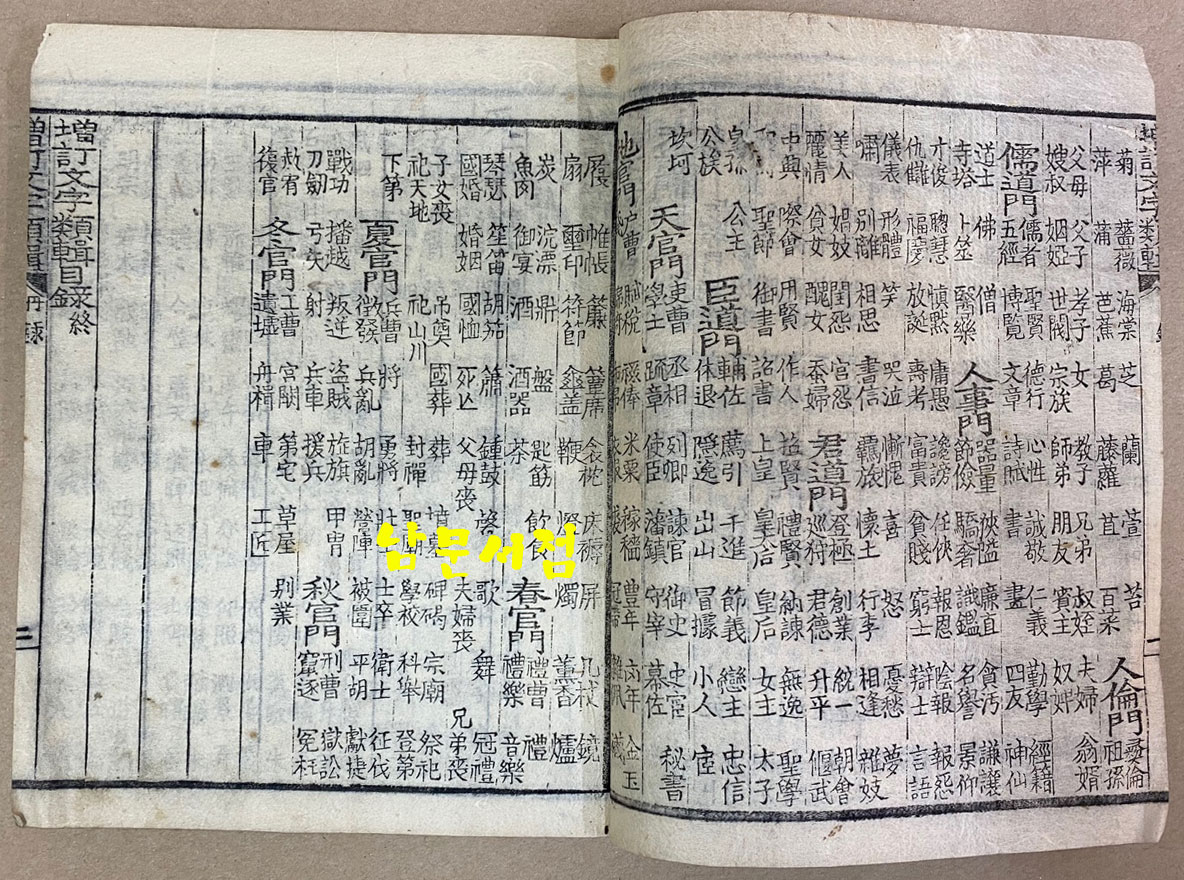 菊 薔薇 海棠 芝 蘭 萱 苔 人倫門 彛倫 祖孫
萍 蒲 芭蕉 葛 藤蘿 苴 百菜
父母 父子 孝子 女 教子 兄弟 叔姪 夫婦 翁婿
嫂叔 姻婭 世閥 宗族 師弟 朋友 賓主 奴婢
儒道門 儒者 聖賢 德行 心性 誠敬 仁義 勤學 經籍
五經 博覽 文章 詩賦 書 畫 四友 神仙
道士 佛 僧 人事門 器量 俠隘 廉直 貪污 謙讓
寺塔 卜筮 醫藥 節儉 驕奢 識鑑 名譽 景仰
才俊 聰慧 愼默 庸愚 讒謗 任俠 報恩 陰報 報怨
仇讎 福慶 放誕 壽考 富貴 貧賤 窮士 辯士 言語
儀表 形體 笑 哭泣 慚愧 喜 怒 憂愁 夢
嘯 別離 相思 書信 羈旅 懷土 行李 相逢 雜妓
美人 娼妓 閨怨 宮怨 君道門 登極 創業 統一 朝會
麗情 貧女 醜女 蚕婦 巡狩 君德 升平 偃武
中興 際會 用賢 作人 招賢 禮賢 納諫 無逸 聖學
聖節 御書 詔書 上皇 皇后 皇后 女主 太子
皇孫 公主 臣道門 輔佐 薦引 干進 節義 戀主 忠信
公族 休退 隱逸 出山 冒據 小人 宦
坎坷 天官門 吏曹 丞相 列卿 諫官 御史 史官 秘書
學士 疏章 使臣 藩鎭 守宰 幕佐
地官門 戶曹 賦稅 祿俸 米粟 稼穡 豊年 凶年 金玉
屐 帷帳 簾 簟席 衾枕 床褥 屛 几杖 鏡
扇 璽印 符節 傘盖 鞭 燈 燭 薰香 爐
炭 浣漂 鼎 盤 匙筯 飮食 春官門 禮曹 禮
魚肉 御宴 酒 酒器 茶 禮樂 音樂
琴瑟 笙笛 胡笳 簫 鍾鼓 歌 舞 冠禮
國婚 婚姻 國恤 死亡 父母喪 夫婦喪 兄弟喪
子女喪 吊奠 國葬 葬 墳墓 碑碣 宗廟 祭祀
祀天地 祀山川 封禪 學校 科擧 登第
下第 夏官門 兵曹 將 勇將 壯士 士卒 衛士 征伐
徵發 兵亂 胡亂 營陣 被圍 平胡 獻捷
戰功 播越 叛逆 盜賊 旌旗 甲冑 秋官門 刑曹 獄訟
刀劒 弓矢 射 兵車 援兵 竄逐 寃枉
赦宥 冬官門 工曹 宮闕 第宅 草屋 別業
復官 遺墟 舟楫 車 工匠
增訂文字類輯目錄終
增訂文字類輯 目錄 二
남문서점